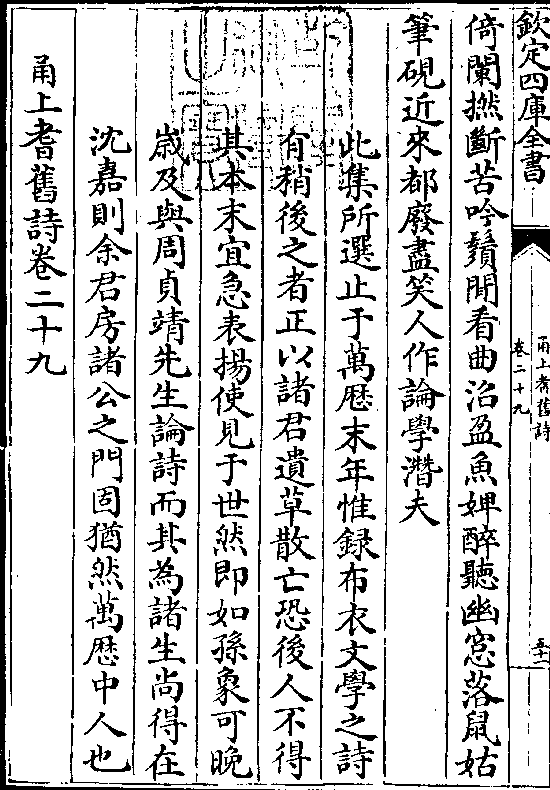 欽定四庫全書
甬上耆舊詩
卷二十九
倚闌撚斷苦吟鬚閒看曲沼盈魚婢醉聽幽窓落鼠姑
筆硯近來都廢盡笑人作論學潛夫
此集所選止于萬厯末年惟録布衣文學之詩
有稍後之者正以諸君遺草散亡恐後人不得
其本末宜急表揚使見于世然即如孫象可晩
歳及與周貞靖先生論詩而其為諸生尚得在
沈嘉則余君房諸公之門固猶然萬厯中人也
甬上耆舊詩卷二十九